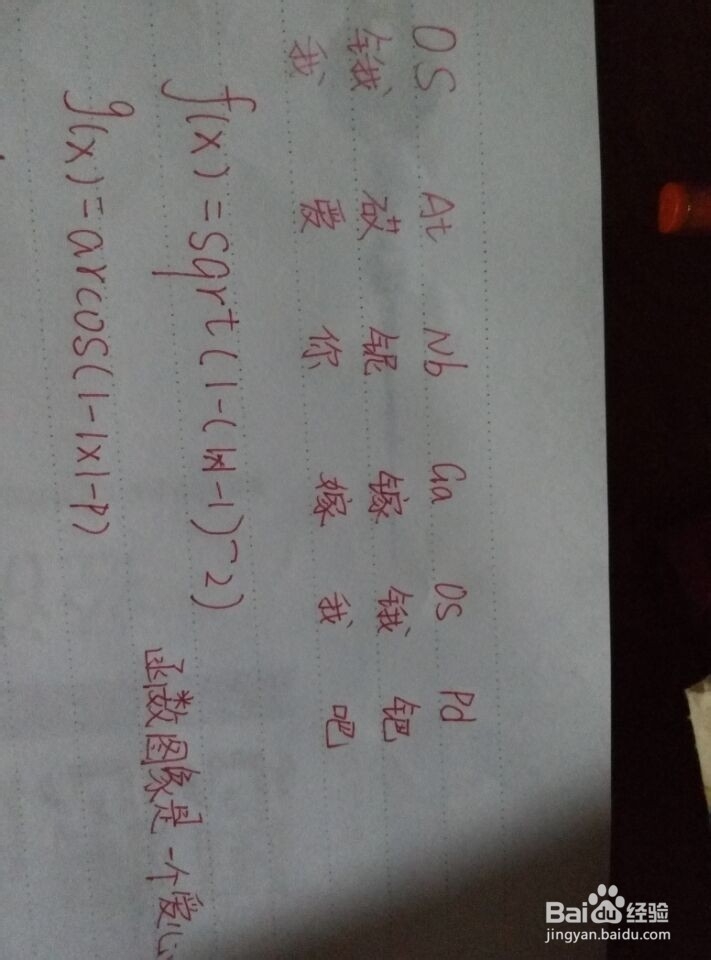 OS At Nb Ga OS Pd
锇 砹 铌 镓 锇 钯
我 爱 你 嫁 我 吧
f(x)=sqrt(1-(|x|-1)^2)
g(x)=arcos(1-|x|-p)
函数图像是一个爱心
Baidu经验
jingyan.baidu.com